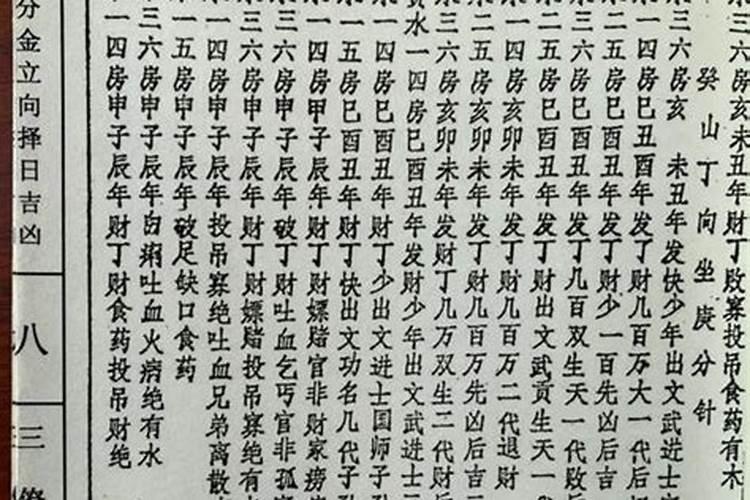 三六房亥未丑年财丁败寡投食药有木
癸山丁向坐庚分针
三六房亥 未丑年发快少年出文武进士
一四房巳丑酉年发了财几百万大一代后
二五房巳酉丑年发丁财少一百先凶后吉
三六房巳酉丑年发丁几百双生天一代败后
二五房巳酉丑年发丁财出文武贡生天一
一四房亥卯未年发丁财几百万二代退财
二五房亥卯未年发丁财几百万先凶后吉
三六房亥卯未年发财丁几万双生二代财后
水一四房巳酉丑年发财少年出文武进士
一四房巳酉丑年财丁少出文进士国师子
一五房巳酉丑年财丁快出文功名几代子
一四房甲子辰年财丁财嫖赌官非财家痨
三六房申子辰年破丁财吐血乞丐官非孤
三六房申子辰年财丁财嫖赌投吊寡绝有
一四房申子辰年投吊寡绝吐血兄弟离散
一五房申子辰年破足缺口食药
三六房申子辰年白痢吐血火病绝有水
一四房申子辰年财丁财食药投吊财绝
分金立向择日吉凶
八
三